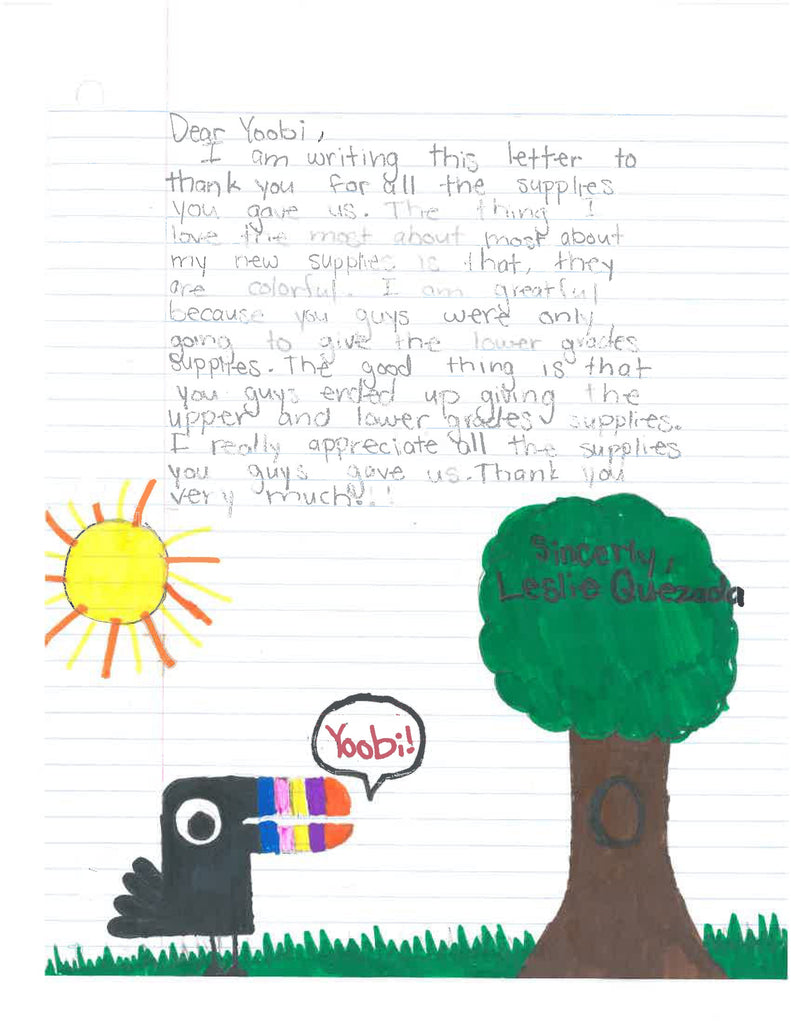 Dear Yoobi,
I am writing this letter to
thank you for all the supplies
you gave us. The thing I
love the most about most about
my new supplies is that, they
are colorful. I am greatful
because you guys were only
going to give the lower grades
supplies. The good thing is that
you guys ended up giving the
upper and lower grades supplies.
I really appreciate all the supplies
you guys gave us. Thank you
very much!!!
Sincerly,
Leslie Quezada
Yoobi!